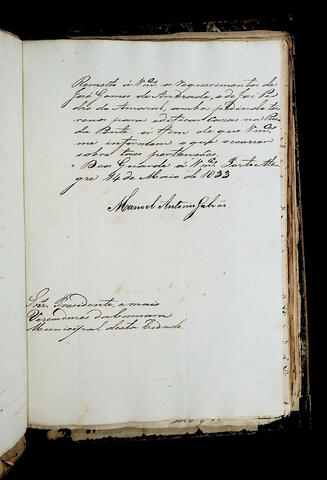 Remetto á Vm.ces o requerimento de
José Gomes de Andrade, e de José Pe
dro do Amaral, ambos pedindo ter
renos para edificar casas na Rua
da Ponte, a fim de que Vm.ces
me informem o que occorrer
sobre taes pretenções.
Deos Guarde a Vm.ces Porto Ale
gre 24 de Maio de 1833
Manoel Antonio Galvão
Snr.es Presidente, e mais
Vereadores da Camara
Municipal desta Cidade.